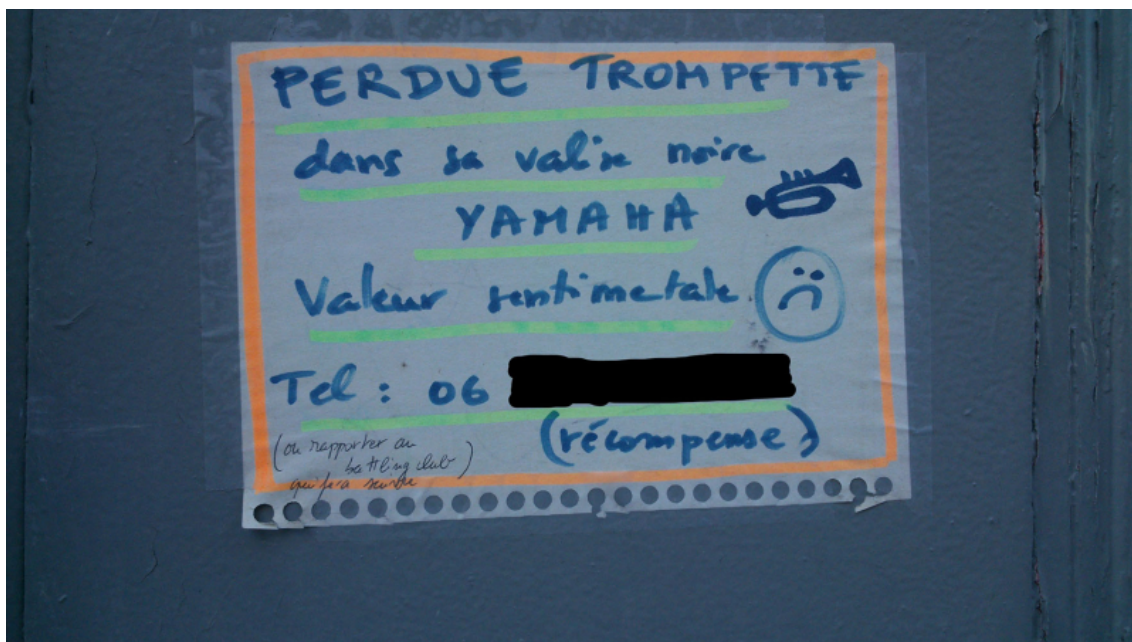 PERDUE TROMPETTE
dans sa valise noire
YAMAHA
Valeur sentimetale
Tel : 06
(récompense)
(ou rapporter au
battling club)
qui fera suivre